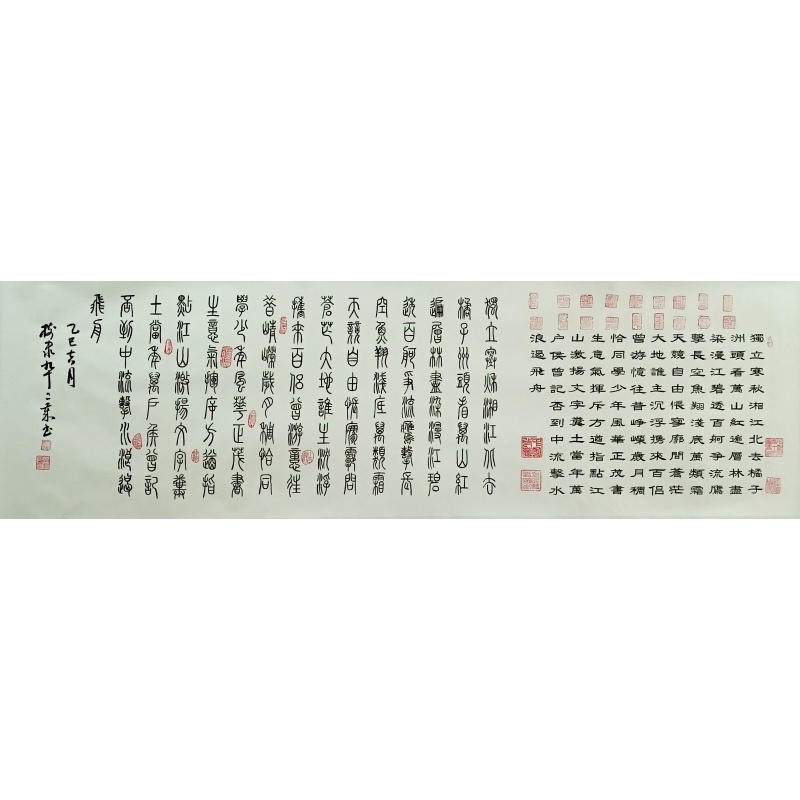 獨立寒秋湘江北去橘子
洲頭看萬山紅遍層林盡
染漫江碧透百舸爭流鷹
擊長空魚翔淺底萬類霜
天競自由悵寥廓問蒼茫
大地誰主沉浮攜來百侶
曾游憶往昔崢嶸歲月稠
恰同學少年風華正茂書
生意氣揮斥方遒指點江
山激揚文字糞土當年萬
户侯曾記否到中流擊水
浪遏飛舟
獨立寒秋湘江北去
橘子洲頭看萬山紅
遍層林盡染漫江碧
透百舸爭流鷹擊長
空魚翔淺底萬類霜
天競自由悵寥廓問
蒼茫大地誰主沉浮
攜來百侶曾游憶往
昔崢嶸歲月稠恰同
學少年風華正茂書
生意氣揮斥方遒指
點江山激揚文字糞
土當年萬戶侯曾記
否到中流擊水浪遏
飛舟
乙巳吉月